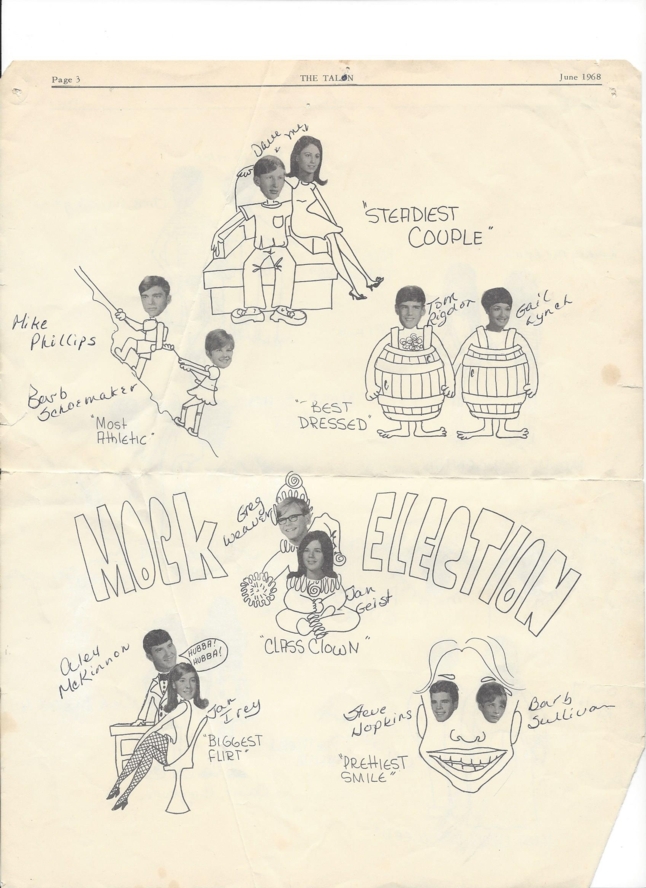 Page 3
THE TALON
June 1968
Dave
+ me
"STEADIEST
COUPLE"
Mike
Phillips
Barb
Schoemaker
"Most
Athletic"
Tom
Rigdon
Gail
Lynch
"BEST
DRESSED"
MOCK
ELECTION
Greg
Weaver
Jan
Geist
"CLASS CLOWN"
Alex
McKinnon
HUBBA!
HUBBA!
Jan
Irey
"BIGGEST
FLIRT"
Steve
Hopkins
Barb
Sullivan
"PRETTIEST
SMILE"